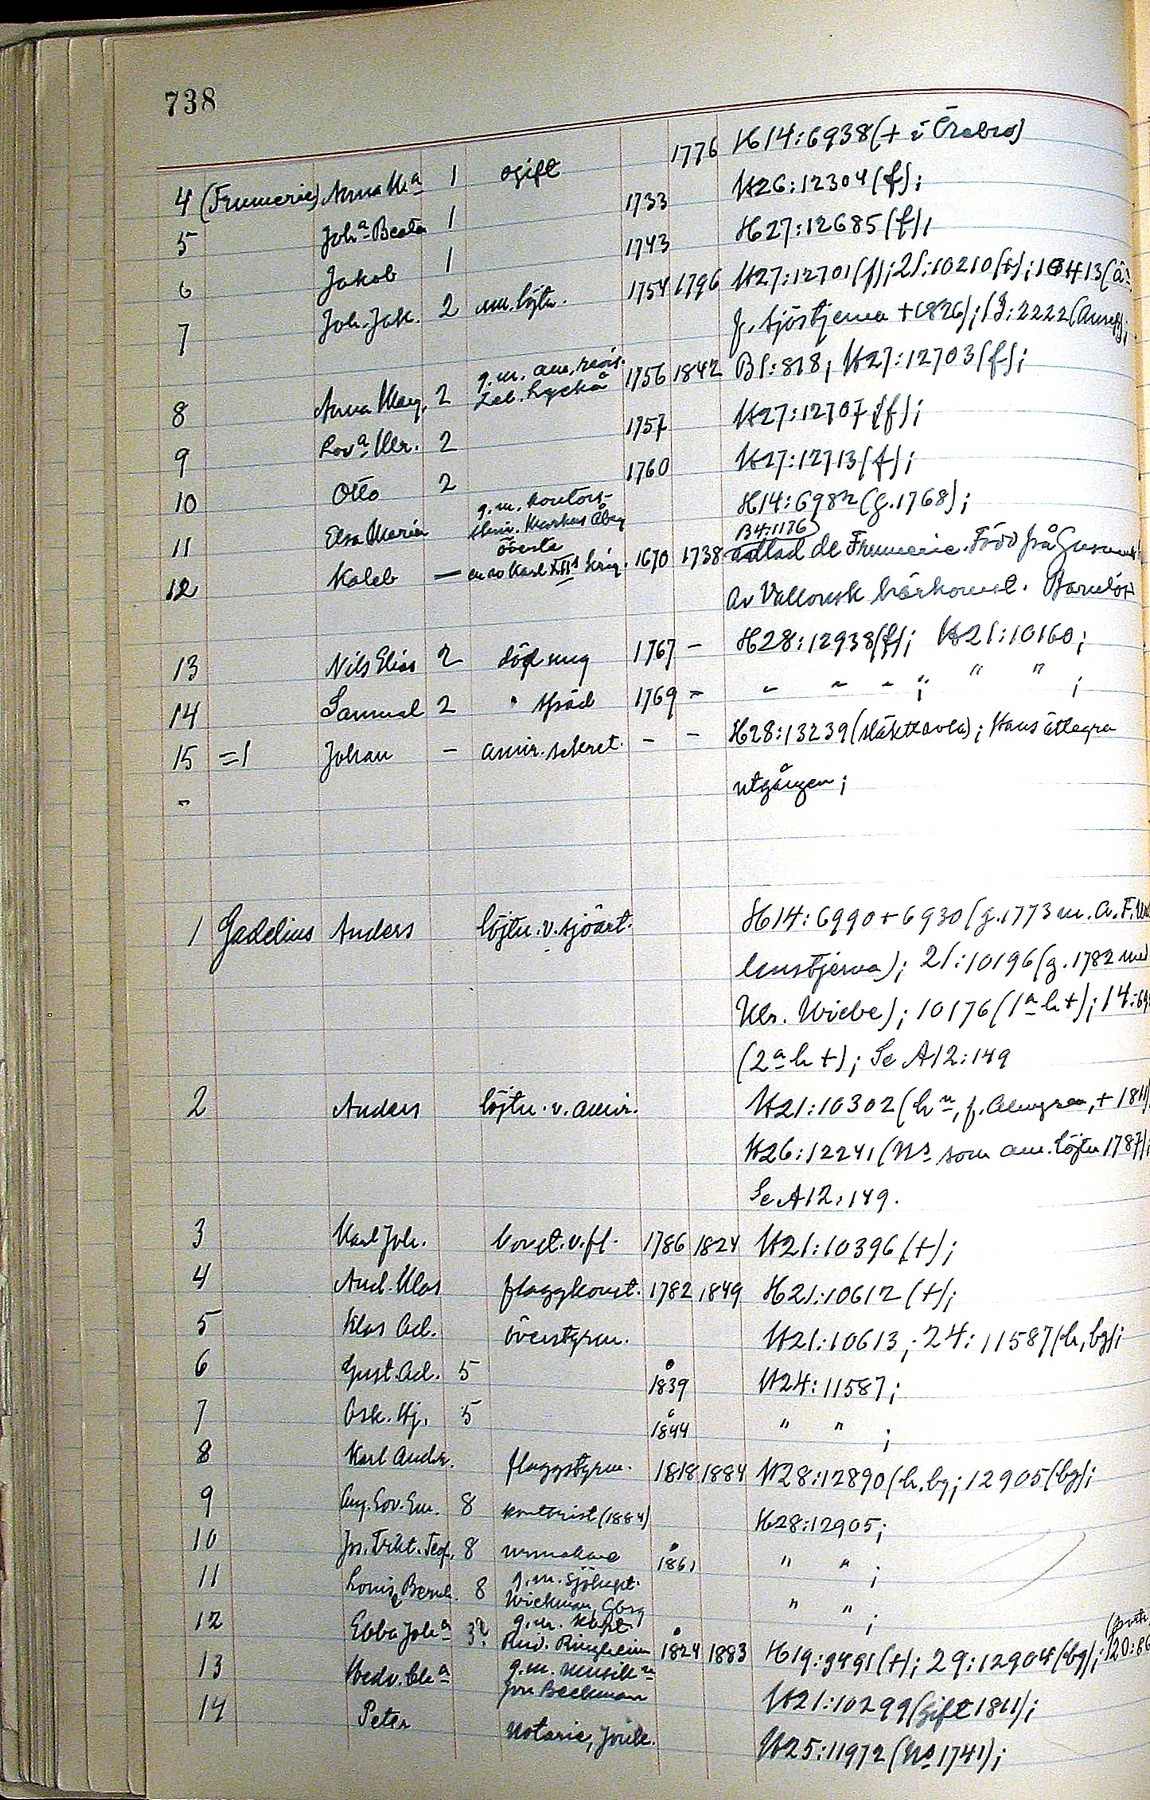 738
4 (Frumerie) Anna Ka 1 ogift 1776 H14:6938 (+ i Örebro)
5 Joha Beata 1 1733 H26:12304 (f);
6 Jakob 1 1743 H27:12685 (f);
7 Joh. Jak. 2 am. löjtn. 1754 1796 H27:12701 (f); 21:10210 (+);
g. Sjöstjerna + 1826); 13:2222
8 Anna Marg. 2 g.m. am. revis. 1756 1842 B1:818; H27:12703 (f);
Zak. Lychå
9 Lova Ulr. 2 1757 H27:12707 (f);
10 Otto 2 1760 H27:12713 (f);
11 Elsa Maria g.m. kontors- H14:6982 (g. 1768);
skriv. Markus Åberg B4:1176
12 Kaleb — överste 1670 1738 adlad de Frumerie. Född från
en av Karl XIIs krig.
av Vallonsk härkomst. Barnlös
13 Nils Elias 2 död ung 1767 – H28:12938 (f); H21:10160;
14 Samuel 2 " späd 1769 – " " " ; " " ;
15 =1 Johan – amir. sekret. – – H28:13239 (släkttavla); Hans ättegren
utgången;
1 Gadelius Anders löjtn. v. sjöart. H14:6990 + 6930 (g. 1773 m. A. F.
lenstjerna); 21:10196 (g. 1782 med
Ulr. Wiebe); 10176 (1a h +); 14:
(2a h +); Se A12:149
2 Anders löjtn. v. amir. H21:10302 (hn, f. Almgren, + 1811)
H26:12241 (Ns som am. löjtn 1787);
Se A12:149.
3 Karl Joh. konst. v. fl. 1786 1824 H21:10396 (+);
4 And. Klas flaggkonst. 1782 1849 H21:10612 (+);
5 Klas Ad. överstyrm. H21:10613; 24:11587 (h, bg);
6 Gust. Ad. 5 1839 H24:11587;
7 Osk. Hj. 5 1844 " " ;
8 Karl Andr. flaggstyrm. 1818 1884 H28:12890 (h. bg; 12905 (bg);
9 Aug. Lov. Em. 8 kontorist (1884) H28:12905;
10 Jos. Vikt. Teof. 8 urmakare 1861 " " ;
11 Louise Bernh. 8 g.m. sjökapt. " " ;
Wickman, Gbrg
12 Ebba Joha 3? g.m. kapt. 1824 1883 H19:9491 (+); 29:12904 (bg);
Rud. Ringheim
13 Hedv. Cha g.m. musikn H21:10299 (gift 1811);
Jon Beckman
14 Peter Notarie, Jönk. H25:11972 (Ns 1741);